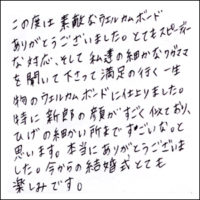 この度は素敵なウェルカムボード
ありがとうございました。とてもスピーディー
な対応、そして私達の細かなワガママ
を聞いて下さって満足の行く一生
物のウェルカムボードに仕上りました。
特に新郎の顔がすごく似ており、
ひげの細かい所まですごいな。と
思います。本当にありがとうございま
した。今からの結婚式とても
楽しみです。